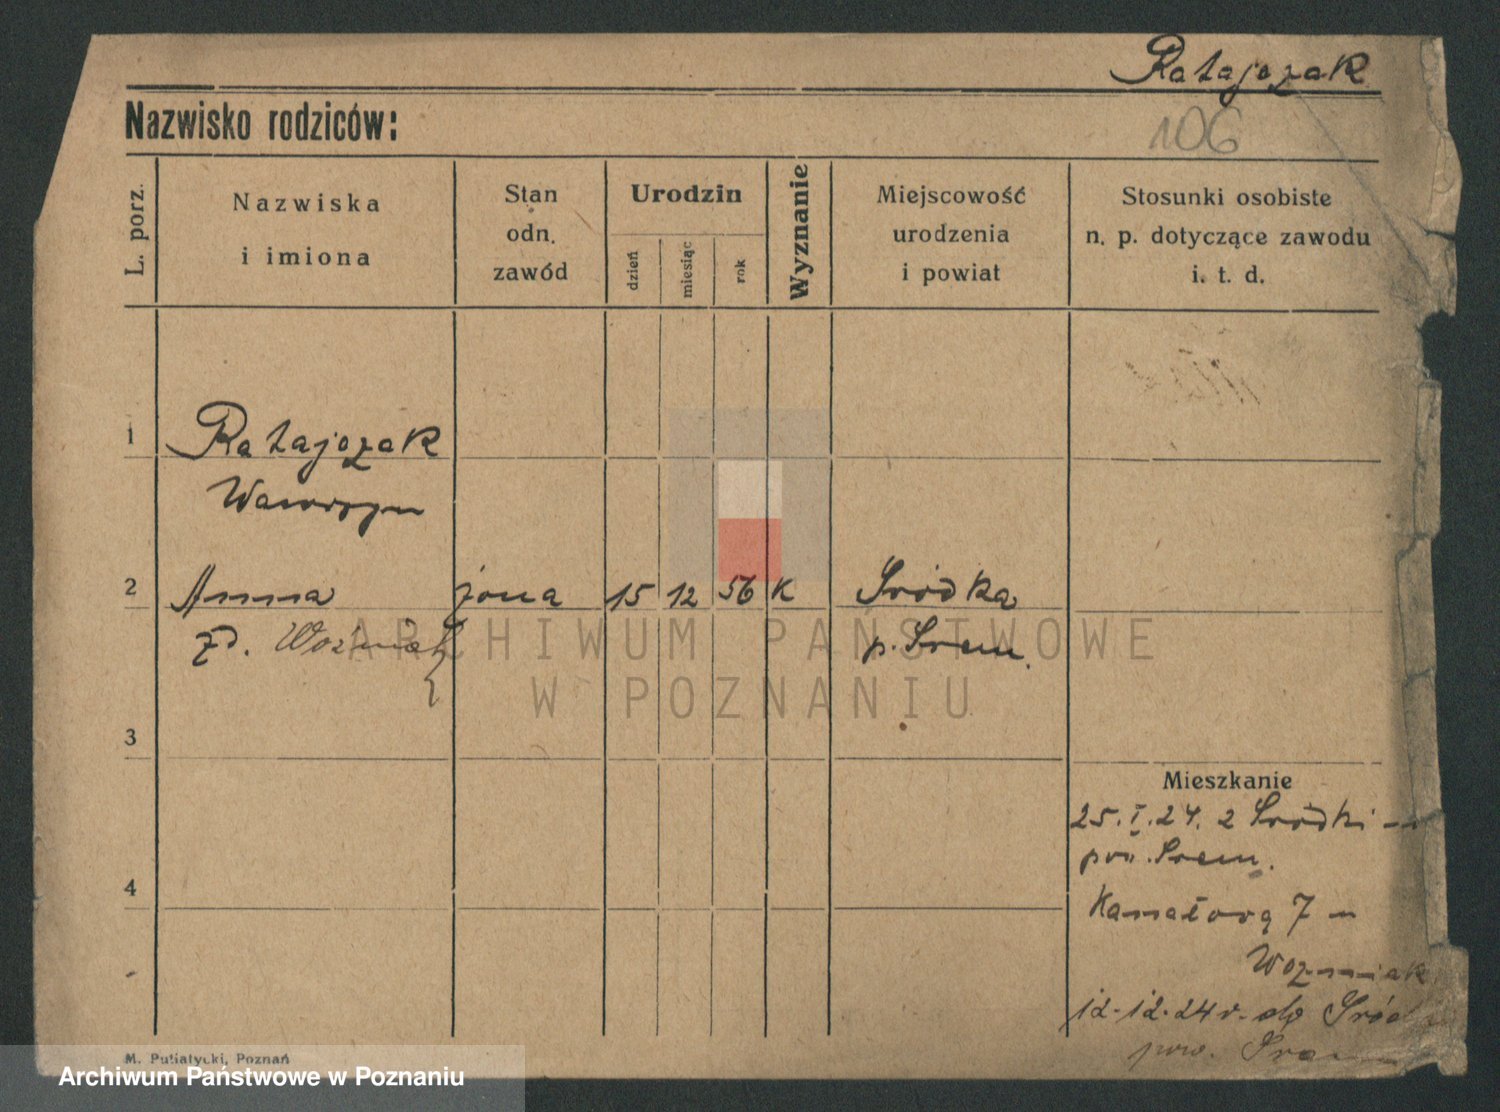 Ratajczak
Nazwisko rodziców:
106
L. porz.
Nazwiska
i imiona
Stan
odn.
zawód
Urodzin
dzień
miesiąc
rok
Wyznanie
Miejscowość
urodzenia
i powiat
Stosunki osobiste
n. p. dotyczące zawodu
i. t. d.
1 Ratajczak
Wawrzyn
2 Anna żona 15 12 56 K Śródka
zd. Woźniak p. Śrem.
3
Mieszkanie
25. I. 24. z Śródki
pow. Śrem.
4
Kanałowa 7
Woźniak
12.12.24 r. do Śródki
pow. Śrem
M. Putiatycki, Poznań
ARCHIWUM PAŃSTWOWE
W POZNANIU
Archiwum Państwowe w Poznaniu